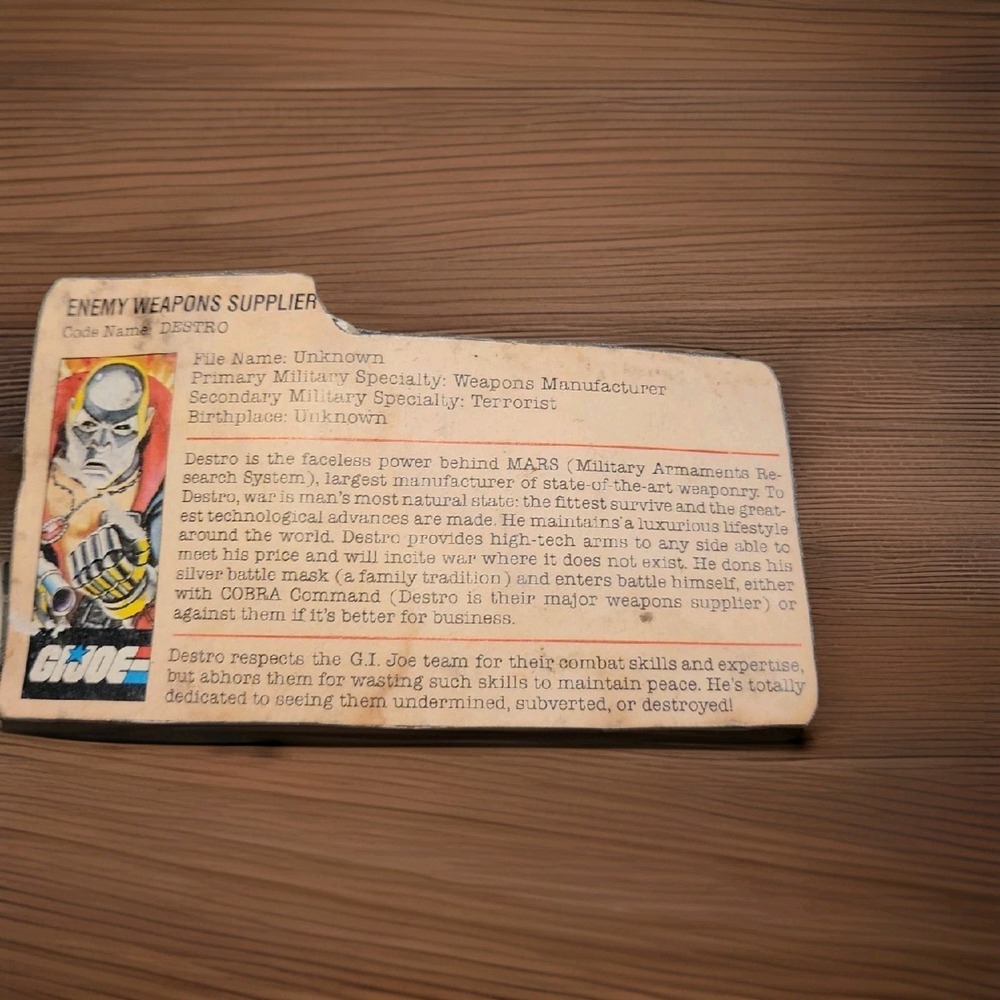 ENEMY WEAPONS SUPPLIER
Code Name: DESTRO
File Name: Unknown
Primary Military Specialty: Weapons Manufacturer
Secondary Military Specialty: Terrorist
Birthplace: Unknown
Destro is the faceless power behind MARS (Military Armaments Re-
search System), largest manufacturer of state-of-the-art weaponry. To
Destro, war is man's most natural state: the fittest survive and the great-
est technological advances are made. He maintains a luxurious lifestyle
around the world. Destro provides high-tech arms to any side able to
meet his price and will incite war where it does not exist. He dons his
silver battle mask (a family tradition) and enters battle himself, either
with COBRA Command (Destro is their major weapons supplier) or
against them if it's better for business.
GIJOE
Destro respects the G.I. Joe team for their combat skills and expertise,
but abhors them for wasting such skills to maintain peace. He's totally
dedicated to seeing them undermined, subverted, or destroyed!